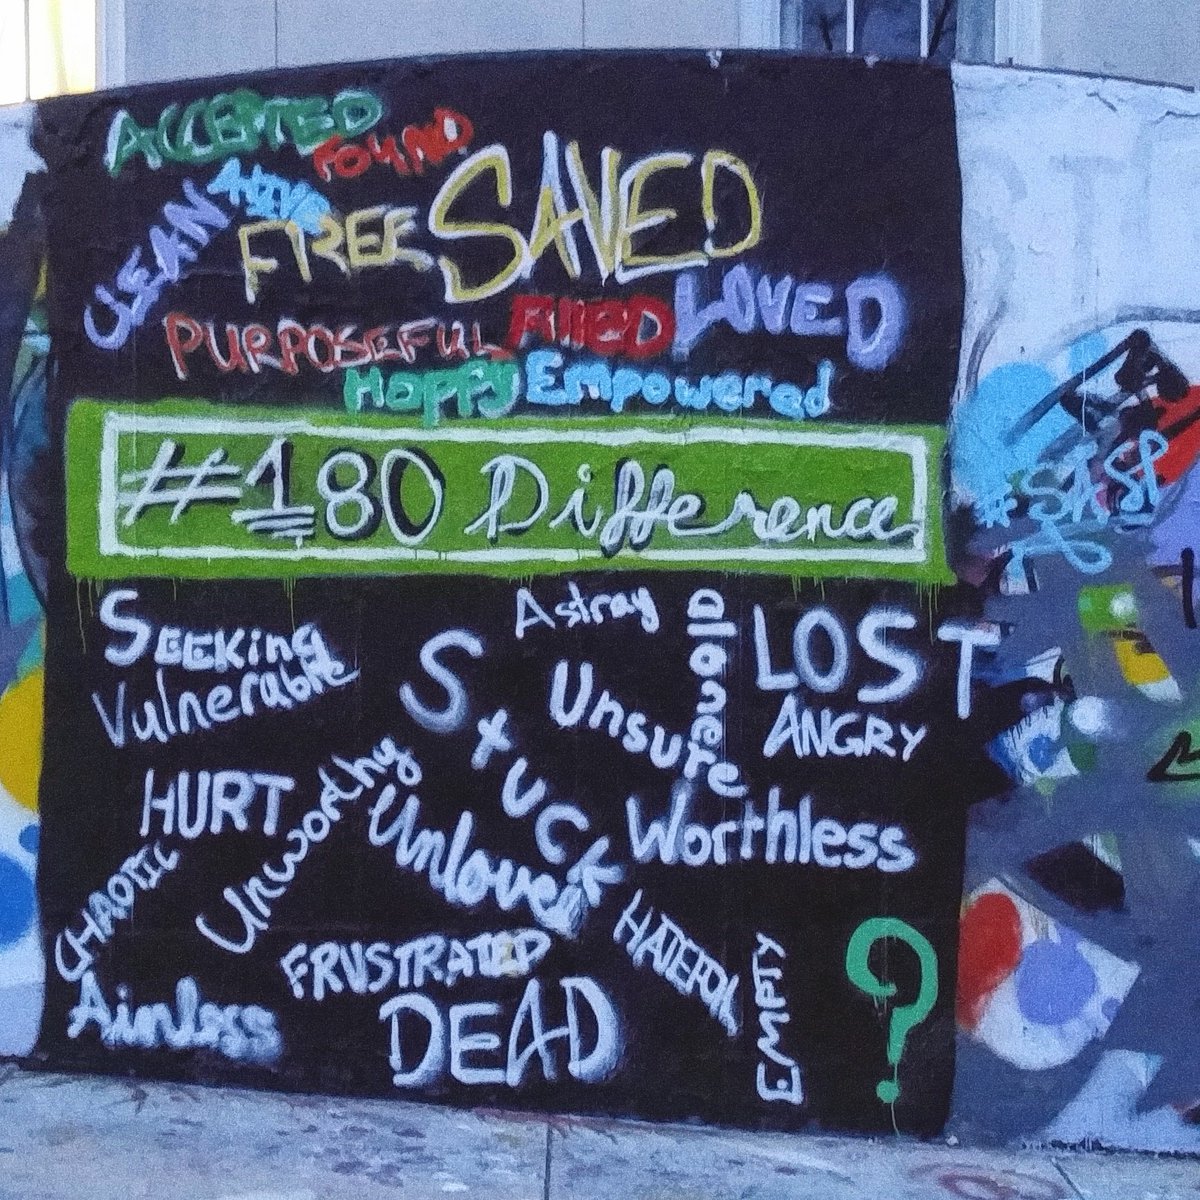 ACCEPTED
FOUND
CLEAN
ALIVE
FREE
SAVED
PURPOSEFUL
FIllED
LOVED
Happy
Empowered
#180 Difference
SEEKing
Vulnerable
Astray
Alone
LOST
STUCK
Unsure
ANGRY
HURT
Unworthy
Unloved
Worthless
CHAOTIC
FRUSTRATED
HATEFUL
EMPTY
?
Aimless
DEAD